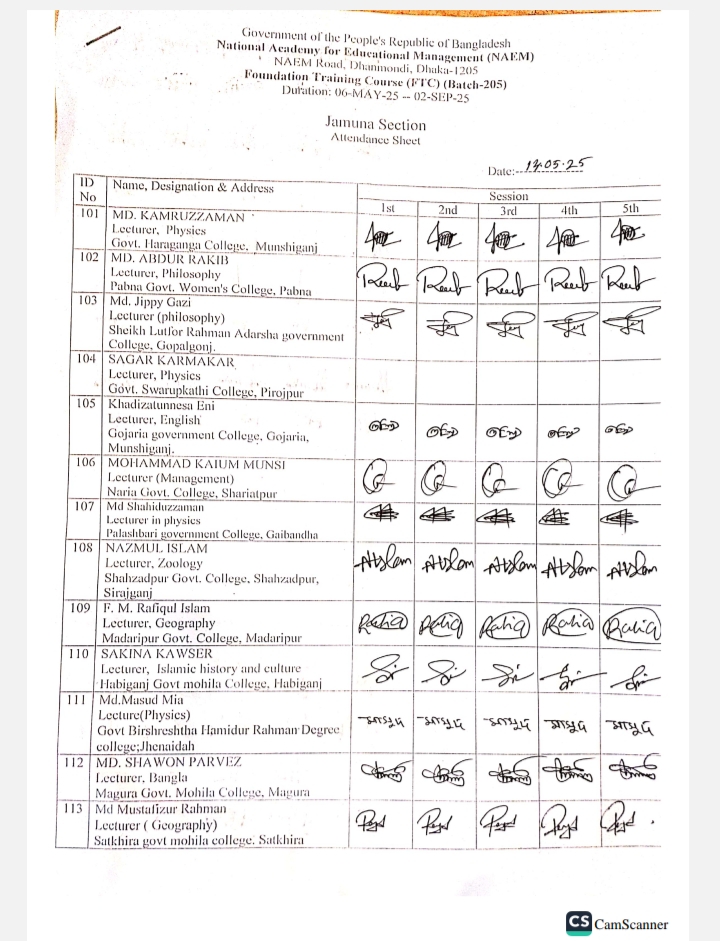 Government of the People's Republic of Bangladesh
National Academy for Educational Management (NAEM)
NAEM Road, Dhanmondi, Dhaka-1205
Foundation Training Course (FTC) (Batch-205)
Duration: 06-MAY-25 -- 02-SEP-25
Jamuna Section
Attendance Sheet
Date:- 13.05.25
ID No Name, Designation & Address Session
1st 2nd 3rd 4th 5th
101 MD. KAMRUZZAMAN
Lecturer, Physics
Govt. Haraganga College, Munshiganj
102 MD. ABDUR RAKIB
Lecturer, Philosophy
Pabna Govt. Women's College, Pabna
103 Md. Jippy Gazi
Lecturer (philosophy)
Sheikh Lutfor Rahman Adarsha government
College, Gopalgonj.
104 SAGAR KARMAKAR
Lecturer, Physics
Govt. Swarupkathi College, Pirojpur
105 Khadizatunnesa Eni
Lecturer, English
Gojaria government College, Gojaria,
Munshiganj.
106 MOHAMMAD KAIUM MUNSI
Lecturer (Management)
Naria Govt. College, Shariatpur
107 Md Shahiduzzaman
Lecturer in physics
Palashbari government College, Gaibandha
108 NAZMUL ISLAM
Lecturer, Zoology
Shahzadpur Govt. College, Shahzadpur,
Sirajganj
109 F. M. Rafiqul Islam
Lecturer, Geography
Madaripur Govt. College, Madaripur
110 SAKINA KAWSER
Lecturer, Islamic history and culture
Habiganj Govt mohila College, Habiganj
111 Md.Masud Mia
Lecture(Physics)
Govt Birshreshtha Hamidur Rahman Degree
college;Jhenaidah
112 MD. SHAWON PARVEZ
Lecturer, Bangla
Magura Govt. Mohila College, Magura
113 Md Mustafizur Rahman
Lecturer ( Geography)
Satkhira govt mohila college. Satkhira
CS CamScanner